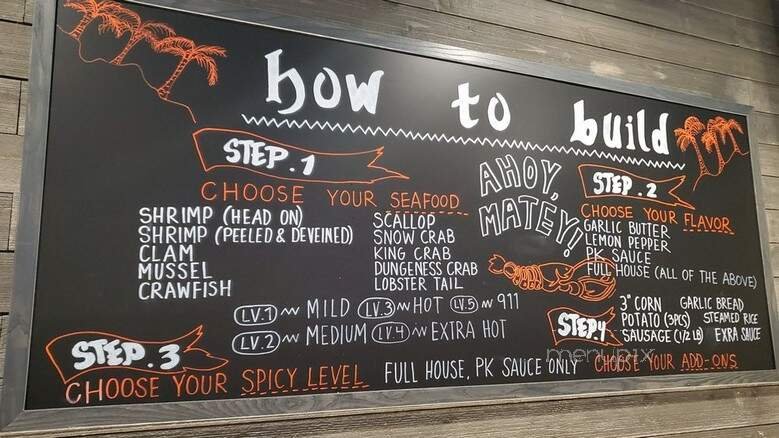 how to build
STEP.1
CHOOSE YOUR SEAFOOD
SHRIMP (HEAD ON)
SHRIMP (PEELED & DEVEINED)
CLAM
MUSSEL
CRAWFISH
SCALLOP
SNOW CRAB
KING CRAB
DUNGENESS CRAB
LOBSTER TAIL
AHOY,
MATEY!
STEP.2
CHOOSE YOUR FLAVOR
GARLIC BUTTER
LEMON PEPPER
PK SAUCE
FULL HOUSE (ALL OF THE ABOVE)
STEP.3
CHOOSE YOUR SPICY LEVEL
LV.1 MILD LV.3 HOT LV.5 911
LV.2 MEDIUM LV.4 EXTRA HOT
FULL HOUSE, PK SAUCE ONLY
STEP.4
3" CORN GARLIC BREAD
POTATO (3PCS) STEAMED RICE
SAUSAGE (1/2 LB) EXRA SAUCE
CHOOSE YOUR ADD-ONS
menupix